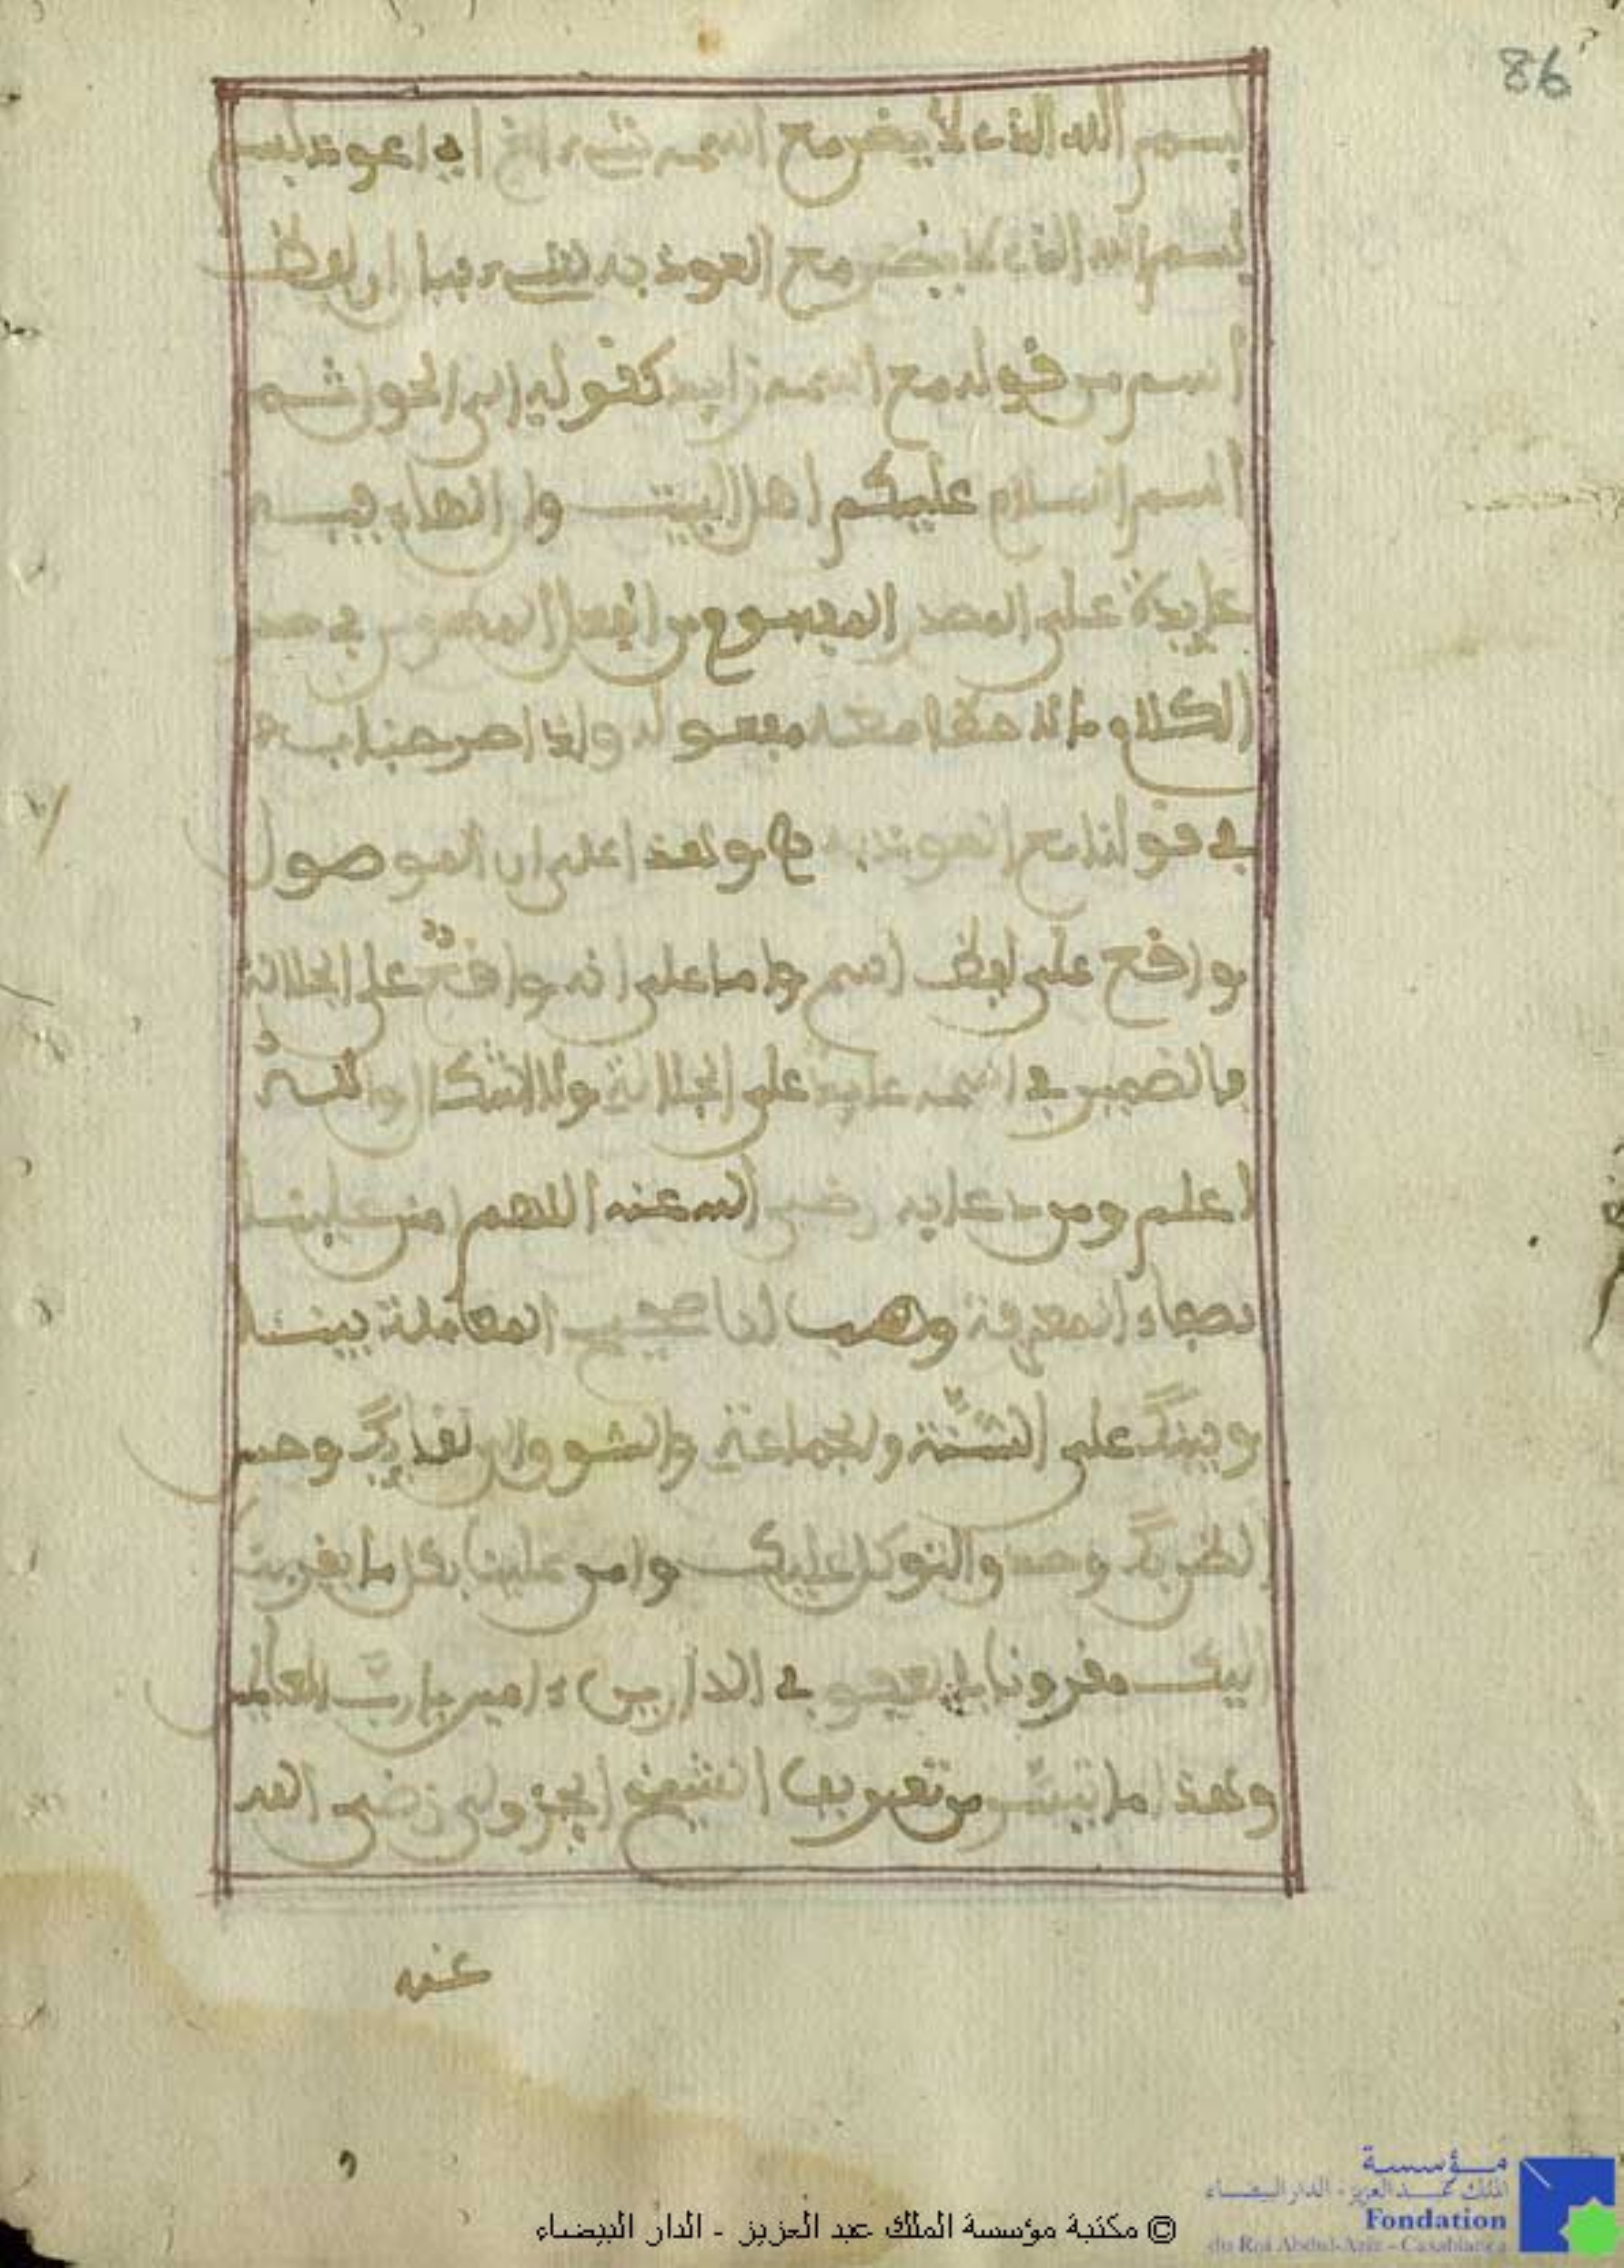 86
بسم الله الذي لا يضر مع اسمه شيء الخ اي اعوذ بسم
بسم الله الذي لا يضر مع العوذ به شيء فيا ان لفظ
اسم من قوله مع اسمه زايد كقوله الى الحول ثم
اسم السلام عليكم اهل البيت وان الهاء فيه
عايدة على المصدر المفهوم من الفعل في صدر
الكلام مانه هذا معنى قوله واذا
في قولنا مع العوذ به وهذا على ان الموصول
واقع على لفظ اسم واما على انه واقع على الجلالة
فالضمير في اسمه عايد على الجلالة ولا اشكال والله
اعلم ومن دعايه رضي الله عنه اللهم امنن علينا
بصفاء المعرفة وهب لنا صحيح المعاملة بيننا
وبينك على السنة والجماعة والشوق الى لقايك وحسن
الظن بك وصدق التوكل عليك وامنن علينا بكل ما يقربنا
اليك مقرونا بالعفو في الدارين ءامين يا رب العالمين
وهذا ما تيسر من تعريف الشيخ الجزولي رضي الله
عنه
© مكتبة مؤسسة الملك عبد العزيز - الدار البيضاء
مؤسسة
الملك عبد العزيز - الدار البيضاء
Fondation
du Roi Abdul-Aziz - Casablanca